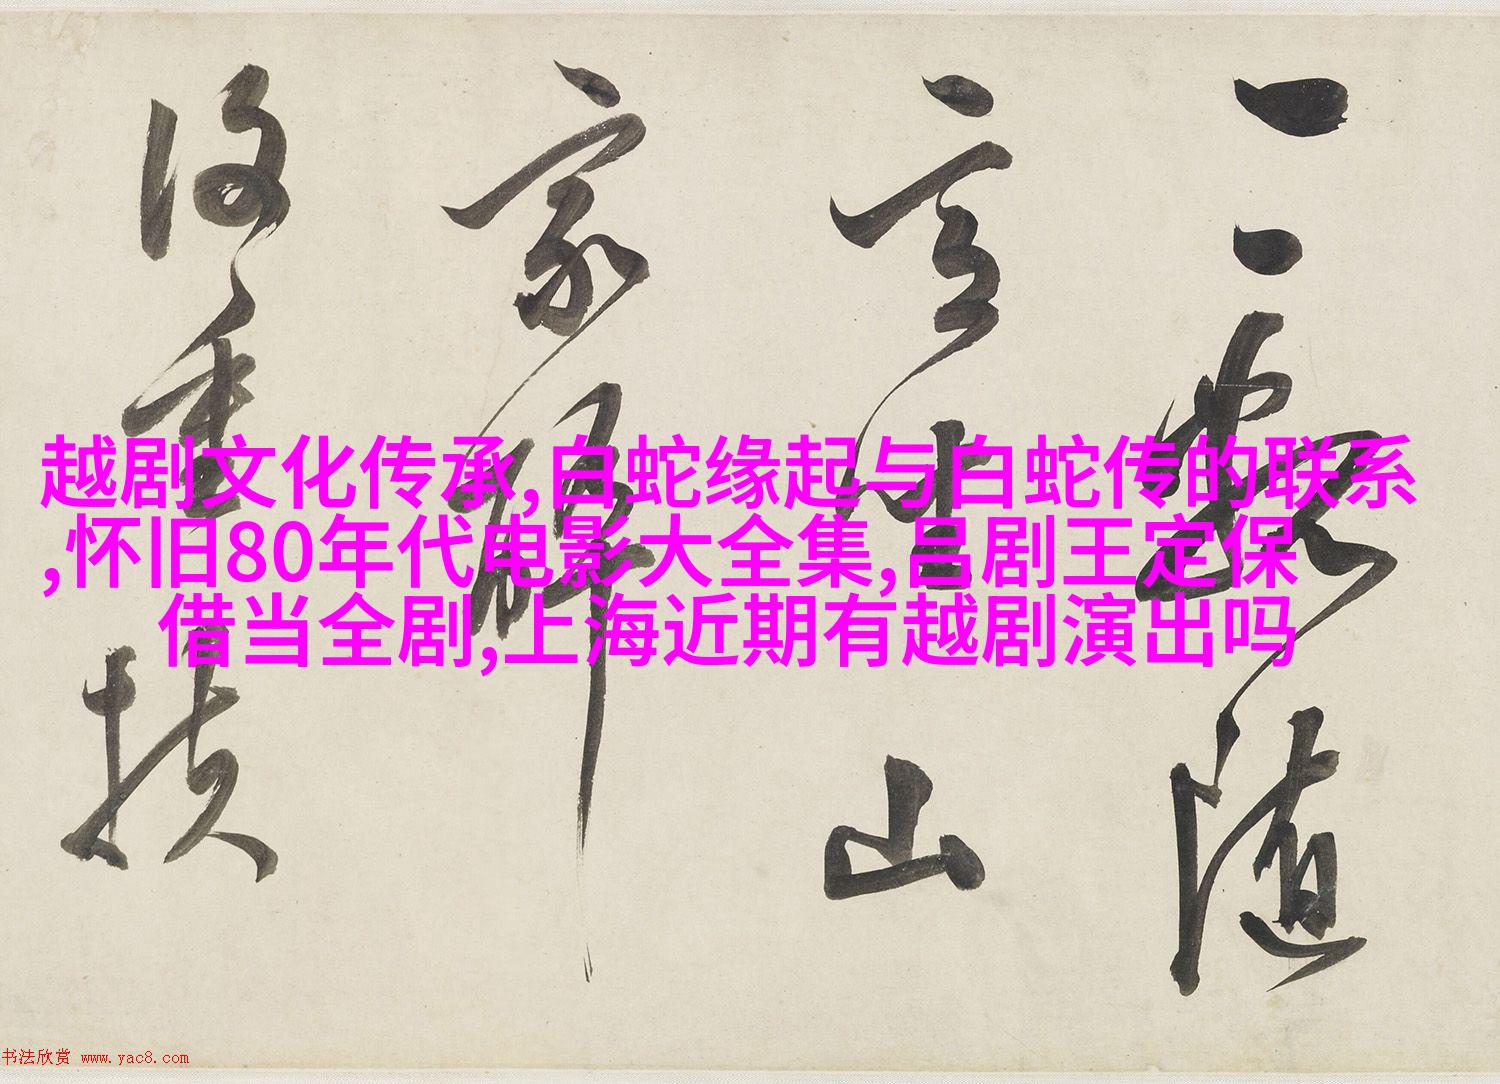 越剧文化传承,白蛇缘起与白蛇传的联系
,怀旧80年代电影大全集,吕剧王定保
借当全剧,上海近期有越剧演出吗
随
山
家
重扶
书法欣赏 www.yac8.com